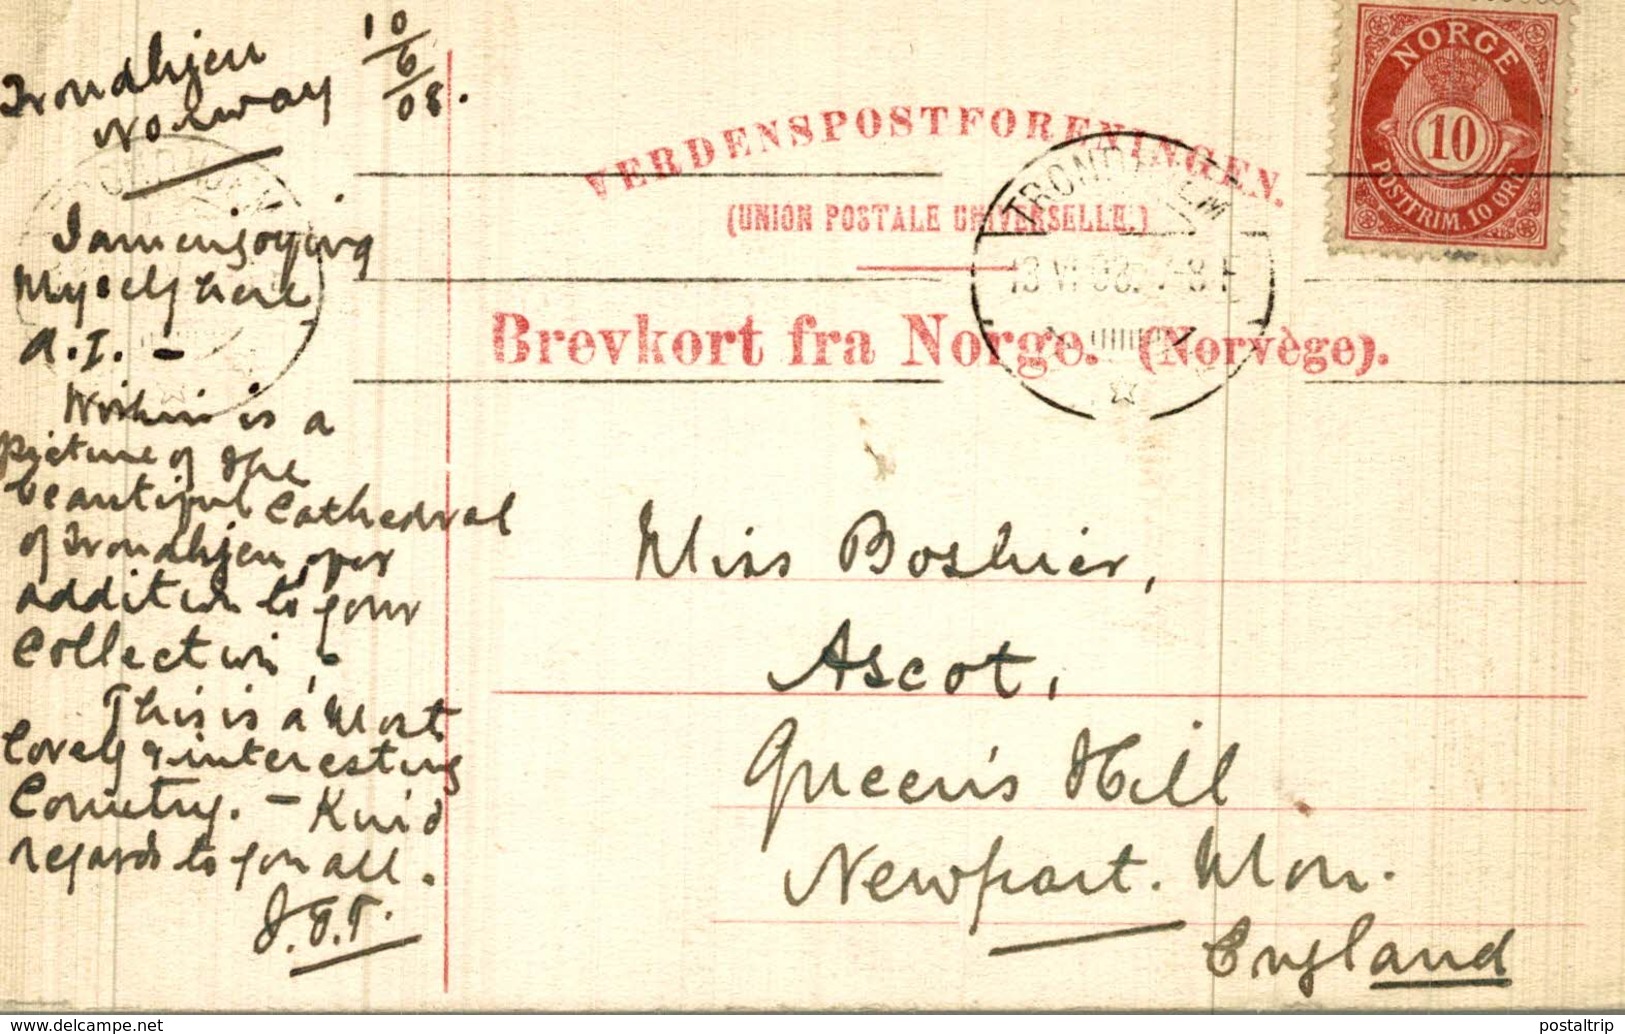 Trondhjem
Norway
10/6/08.
I am enjoying
Myself here
A.I. -
Within is a
picture of the
beautiful Cathedral
of Trondhjem, for
addition to your
Collection.
This is a Most
lovely & interesting
Country. - Kind
regards to you all.
J.T.T.
VERDENSPOSTFORENINGEN.
(UNION POSTALE UNIVERSELLE.)
Brevkort fra Norge. (Norvège).
TRONDHJEM
13 VI 08. 7-8 E
NORGE
10
POSTFRIM. 10 ØRE
Miss Boshier,
Ascot,
Queen's Hill
Newport. Mon.
England
www.delcampe.net
postaltrip